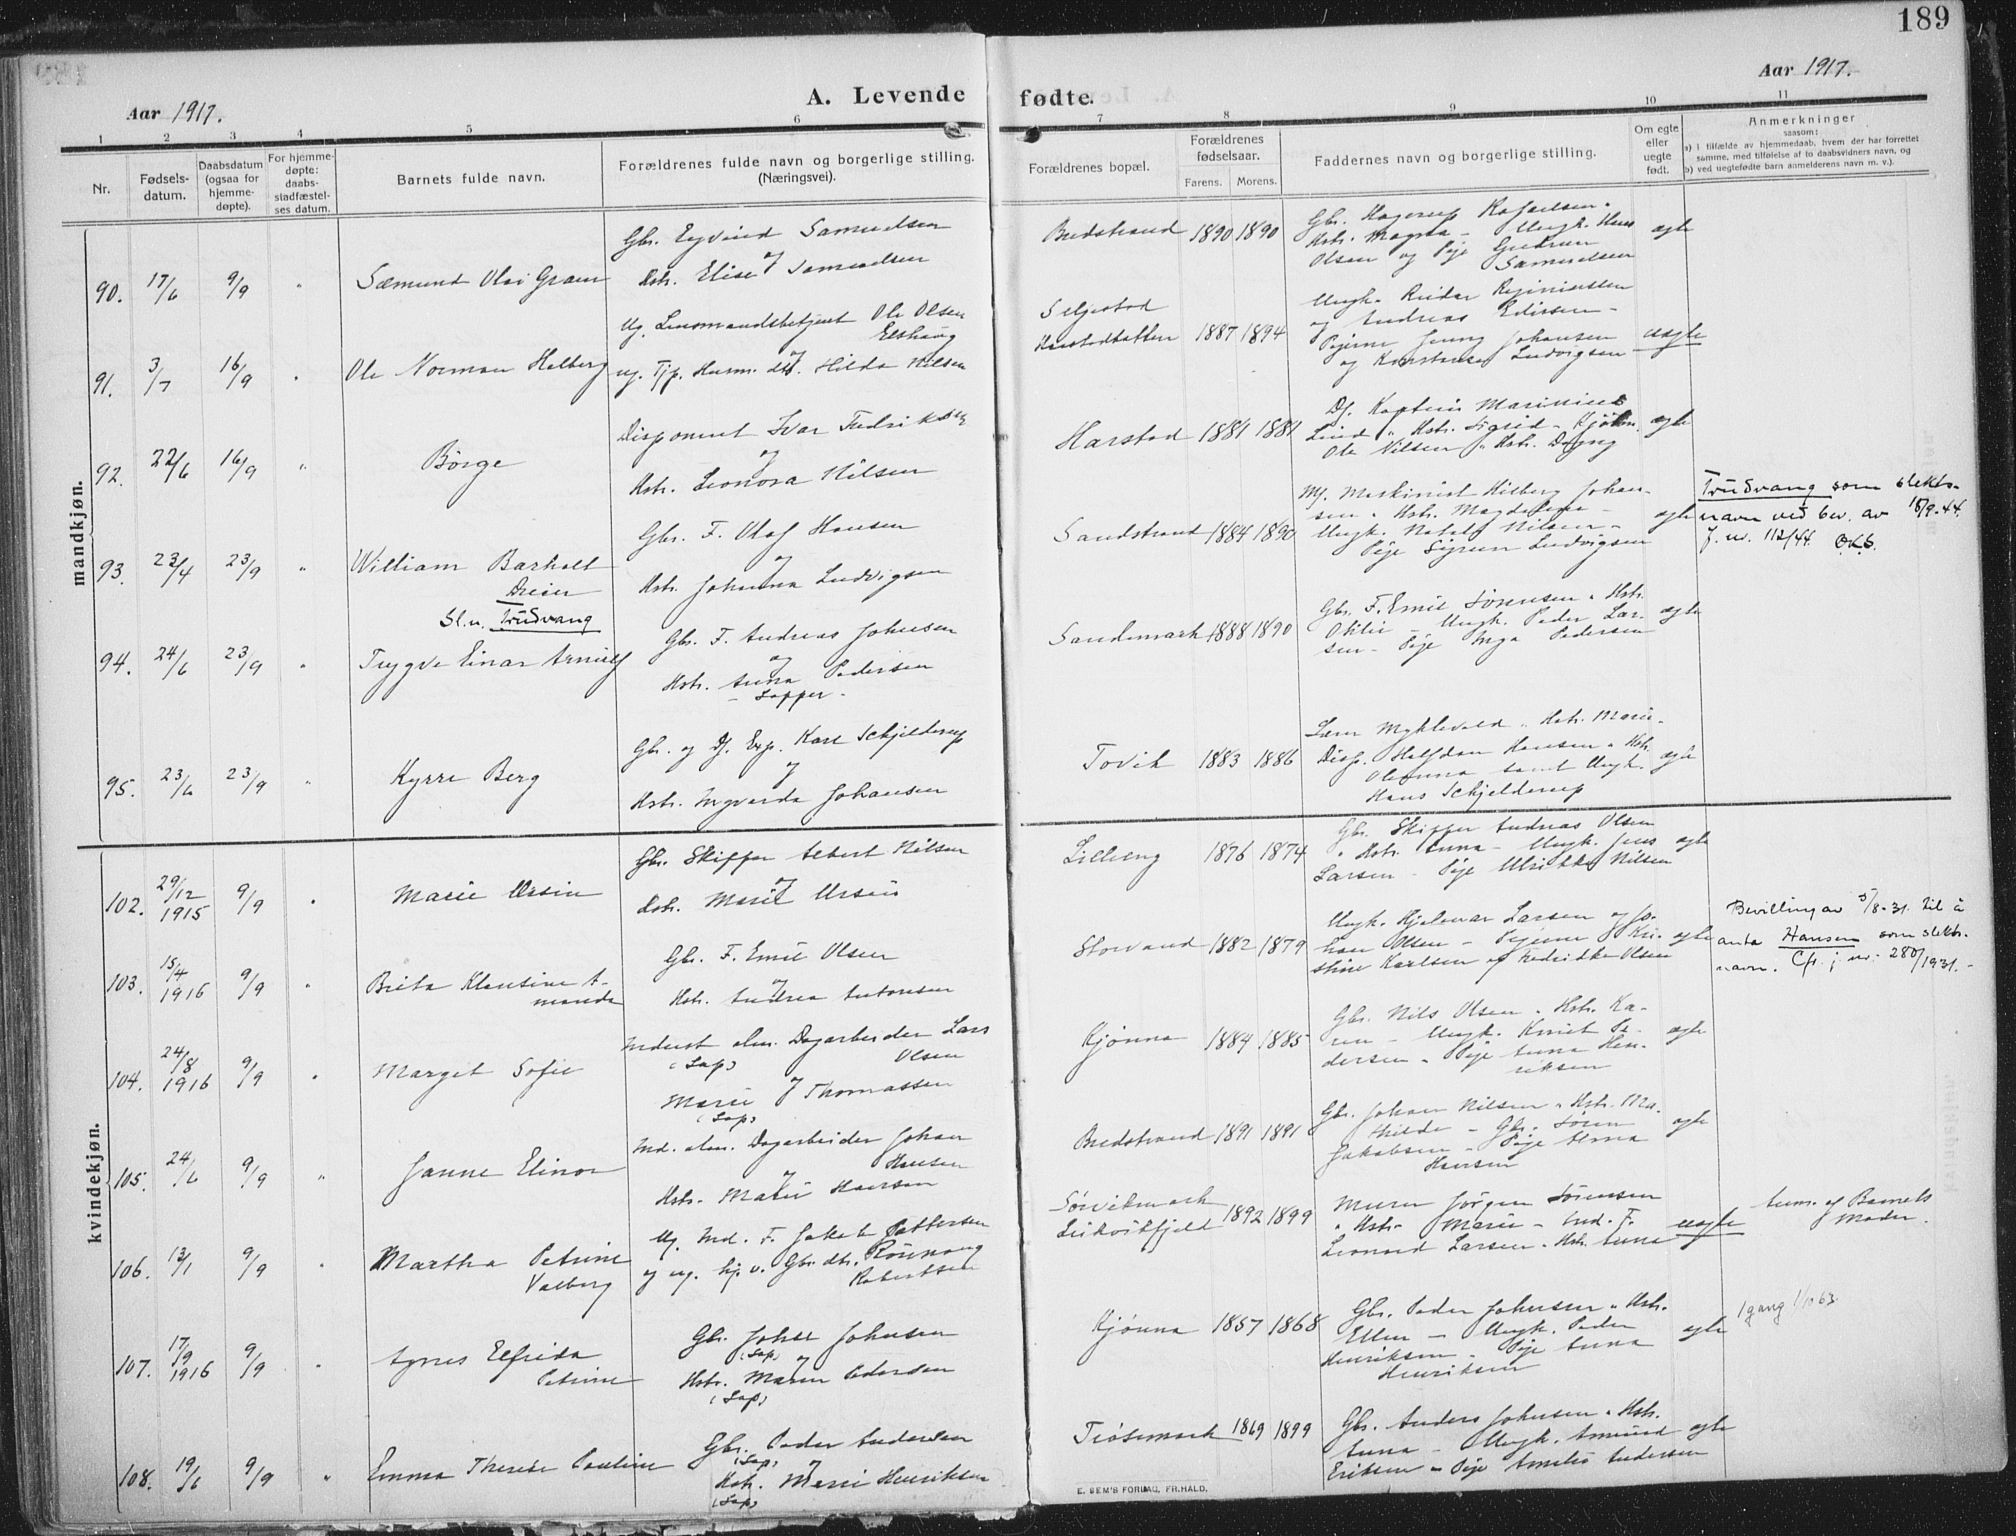 189
Aar 1917.
A. Levende fødte.
Aar 1917.
1 2 3 4 5 6 7 8 9 10 11
Nr.
Fødsels-
datum.
Daabsdatum
(ogsaa for
hjemme-
døpte).
For hjemme-
døpte:
daabs-
stadfæstel-
ses datum.
Barnets fulde navn.
Forældrenes fulde navn og borgerlige stilling.
(Næringsvei).
Forældrenes bopæl.
Forældrenes
fødselsaar.
Farens. Morens.
Faddernes navn og borgerlige stilling.
Om egte
eller
uegte
født.
Anmerkninger
saasom:
a) i tilfælde av hjemmedaab, hvem der har forrettet
samme, med tilføielse af to daabsvidners navn, og
b) ved uegtefødte barn anmelderens navn m. v.).
mandkjøn.
90. 17/6 9/9 " Sæmund Olai Gram
Gbr. Eyvind Samuelsen
og
Hstr. Elise Samuelsen
Bredstrand 1890 1890
Gbr. Hagerup Rafaelsen "
Hstr. Magda - Ungk. Hans
Olsen og Pige Gudrun
Samuelsen
egte
91. 3/7 16/9 " Ole Norman Helberg
Ug. Lensmandsbetjent Ole Olsen
Elshaug
og
ug. Tjp. Husm. dtr. Hilda Nilsen
Seljestad
Harstadbotten 1887 1894
Ungk. Reidar
og Andreas Edissen -
Pigerne Jenny Johansen
og Konstanse Ludvigsen
uegte
92. 22/6 16/9 " Børge
Disponent Ivar Fredriksen
og
Hstr. Leonora Nilsen
Harstad 1881 1881
Df. Kaptein Marinius
Lind " Hstr. Sigrid - Kjøbm.
Ole Nilsen " Hstr. Dagny
egte
93. 23/4 23/9 " William Barholt
Dreier
Sl.n. Trudvang
Gbr. F. Olaf Hansen
og
Hstr. Johanna Ludvigsen
Sandstrand 1884 1890
Mf. Maskinist Hilberg Johan-
sen " Hstr. Magdalena -
Ungk. Natal Nilsen -
Pige Sigrun Ludvigsen
egte
Trudvang som slekts-
navn ved bev. av 18/9-44.
J. nr. 112/44. O.K.S.
94. 24/6 23/9 " Trygve Einar Arnulf
Gbr. F. Andreas Johnsen
og
Hstr. Anna Pedersen
- Lapper -
Sandemark 1888 1890
Gbr. F. Emil Sørensen " Hstr.
Otilie - Ungk. Peder Lar-
sen - Pige Inga Pedersen
egte
95. 23/6 23/9 " Kyrre Berg
Gbr. og Df. Exp. Karl Schjelderup
og
Hstr. Ingvarda Johansen
Tovik 1883 1886
Lærer Myklevold " Hstr. Marie -
Disp. Halfdan Hansen " Hstr.
Oleanna samt Ungk.
Hans Schjelderup
egte
kvindekjøn.
102. 29/12 1915 9/9 " Marie Ursin
Gbr. Skipper Albert Nilsen
og
Hstr. Marie Ursin
Lilleeng 1876 1874
Gbr. Skipper Andreas Olsen
" Hstr. Anna - Ungk. Jens
Larsen - Pige Ulrikke Nilsen
egte
103. 15/4 1916 9/9 " Brita Klausine A-
manda
Gbr. F. Emil Olsen
og
Hstr. Andrea Antonsen
Storvand 1882 1879
Ungk. Hjalmar Larsen og Jo-
han Olsen - Pigerne Kri-
stine Karlsen og Fredrikke Olsen
egte
Bevilling av 5/8-31. til å
anta Hansen som slekts-
navn. Cfr. j. nr. 280/1931. -
104. 24/8 1916 9/9 " Margit Sofie
Inderst alm. Dagarbeider Lars
(Lap) Olsen
og
Marie Thomassen
(Lap)
Kjønna 1884 1885
Gbr. Nils Olsen " Hstr. Ka-
ren - Ungk. Knut Pe-
dersen - Pige Anna Hen-
riksen
egte
105. 24/6 9/9 " Janne Elinor
Ind. alm. Dagarbeider Johan
Hansen
og
Hstr. Marie Hansen
Bredstrand 1891 1891
Gbr. Johan Nilsen " Hstr. Ma-
thilde - Gbr. Søren
Jakobsen - Pige Alma
Hansen
egte
106. 13/1 9/9 " Martha Petrine
Valborg
Ug. Ind. F. Jakob Pettersen
og ug. hj. v. Gbr. dtr. Rønnaug
Robertsen
Sørvikmark
Leikvikfjeld 1892 1899
Murer Jørgen Sørensen
" Hstr. Marie - Ind. F.
Leonard Larsen " Hstr. Anna
uegte
Anm. af Barnets
Moder.
107. 17/9 1916 9/9 " Agnes Elfrida
Petrine
Gbr. Johse Johnsen
(Lap) og
Hstr. Maren Pedersen
(Lap)
Kjønna 1857 1868
Gbr. Peder Johnsen " Hstr.
Ellen - Ungk. Peder
Henriksen - Pige Anna
Henriksen
egte
1 gang 1/10 63.
108. 19/6 9/9 " Emma Therese Pauline
Gbr. Peder Andersen
(Lap) og
Hstr. Marie Henriksen
(Lap)
Trøsemark 1869 1899
Gbr. Anders Johnsen " Hstr.
Anna - Ungk. Amund
Eriksen - Pige Amalie Andersen
egte
E. SEM'S FORLAG, FR.HALD.